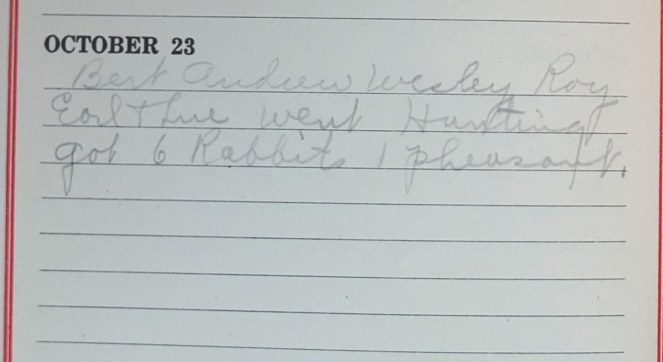 OCTOBER 23
Bert Andrew Wesley Roy
Earl + went Hunting
got 6 Rabbits 1 pheasant.